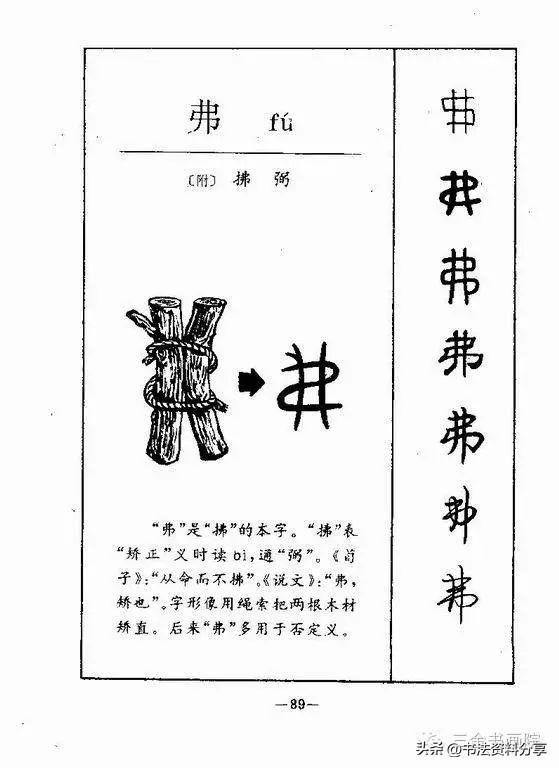 弗 fú
〔附〕 拂 弼
“弗”是“拂”的本字。“拂”表
“矫正”义时读bì,通“弼”。《荀
子》:“从命而不拂”。《说文》:“弗,
矫也”。字形像用绳索把两根木材
矫直。后来“弗”多用于否定义。
弗
弗
弗
弗
弗
弗
弗
—89—
三余书画院
头条 @书法资料分享